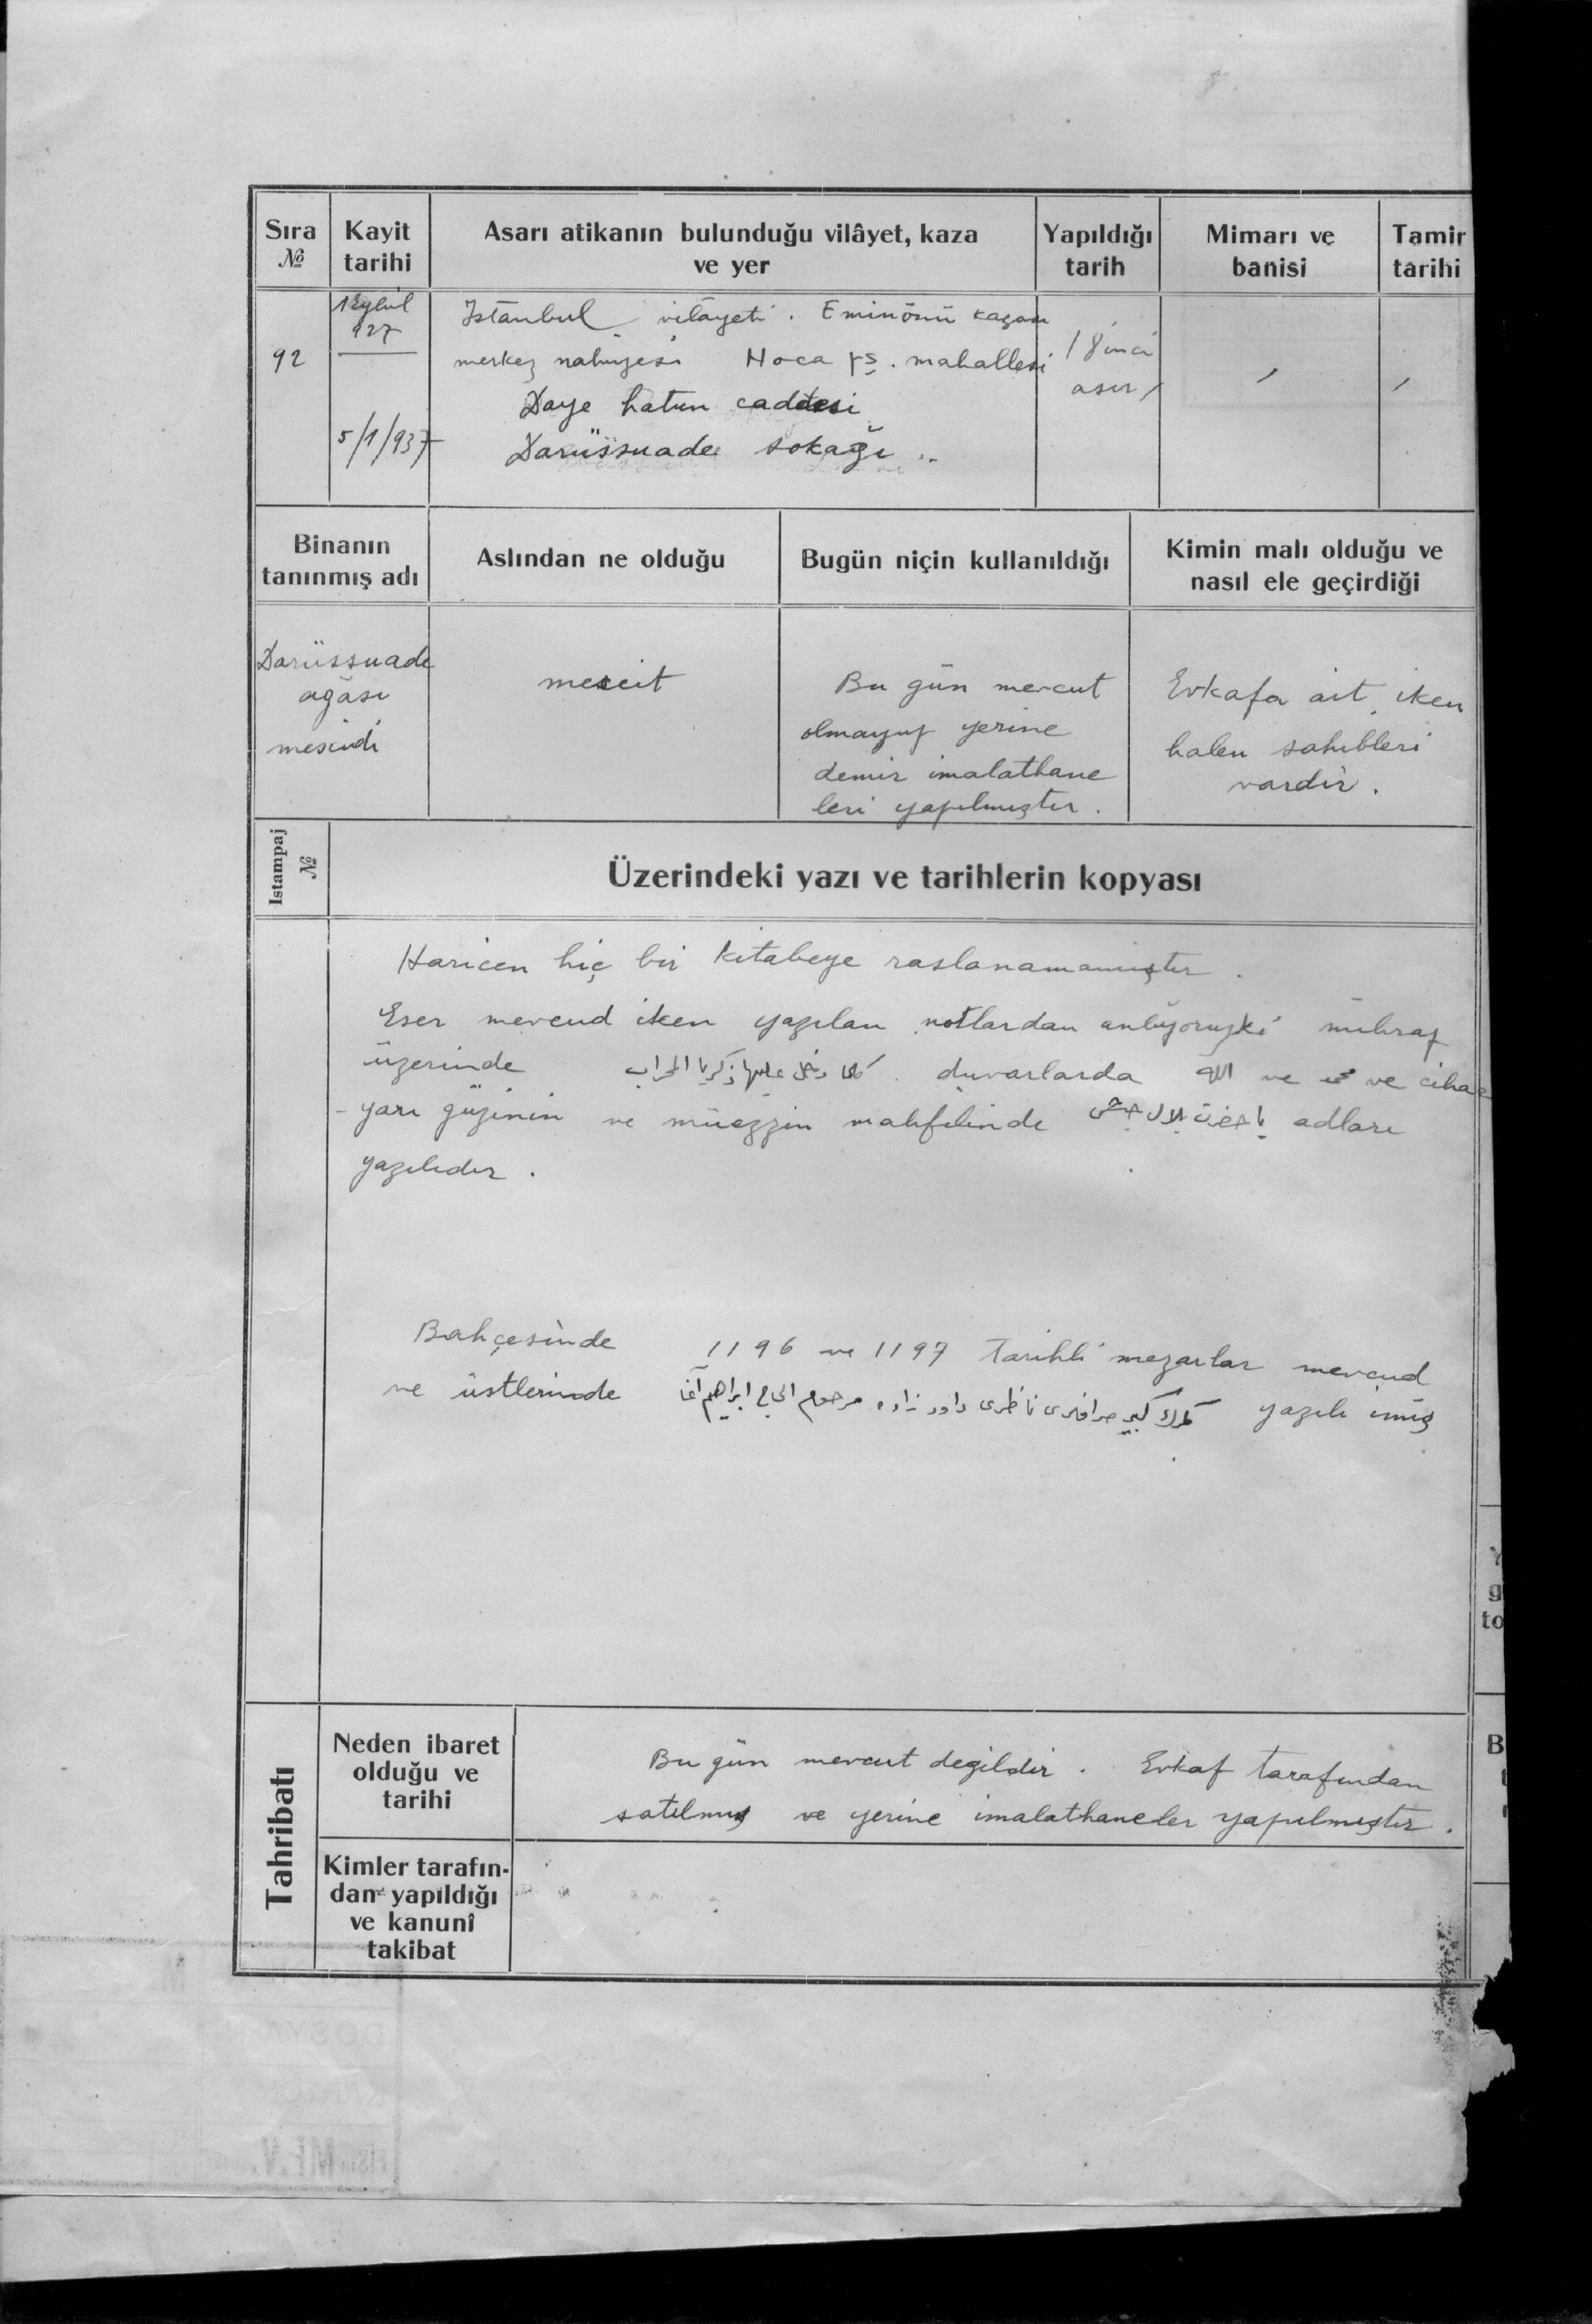 Sıra № Kayit tarihi Asarı atikanın bulunduğu vilâyet, kaza ve yer Yapıldığı tarih Mimarı ve banisi Tamir tarihi
1 Eylül
927
92
5/1/937
Istanbul vilâyeti. Eminönü kazası
merkez nahiyesi Hoca ps. mahallesi
Daye hatun caddesi
Darüssuade sokağı ..
18 inci
asır
Binanın tanınmış adı
Aslından ne olduğu
Bugün niçin kullanıldığı
Kimin malı olduğu ve nasıl ele geçirdiği
Darüssuade
ağası
mescidi
mescit
Bu gün mevcut
olmayup yerine
demir imalathane
leri yapılmıştır.
Evkafa ait iken
halen sahibleri
vardır.
Istampaj №
Üzerindeki yazı ve tarihlerin kopyası
Haricen hiç bir kitabeye raslanamamıştır.
Eser mevcud iken yazılan notlardan anlıyoruzki mihrap
üzerinde كلما دخل عليها زكريا المحراب . duvarlarda الله ve محمد ve cihar
- yarı güzinin ve müezzin mahfilinde يا حضرت بلال حبشى adları
yazılıdır .
Bahçesinde 1196 ve 1197 Tarihli mezarlar mevcud
ve üstlerinde كمرك كبير صرافلرى ناظرى داود زاده مرحوم الحاج ابراهيم آغا yazılı imiş
Tahribatı
Neden ibaret olduğu ve tarihi
Bu gün mevcut değildir . Evkaf tarafından
satılmış ve yerine imalathaneler yapılmıştır .
Kimler tarafın-
dan yapıldığı
ve kanunî
takibat